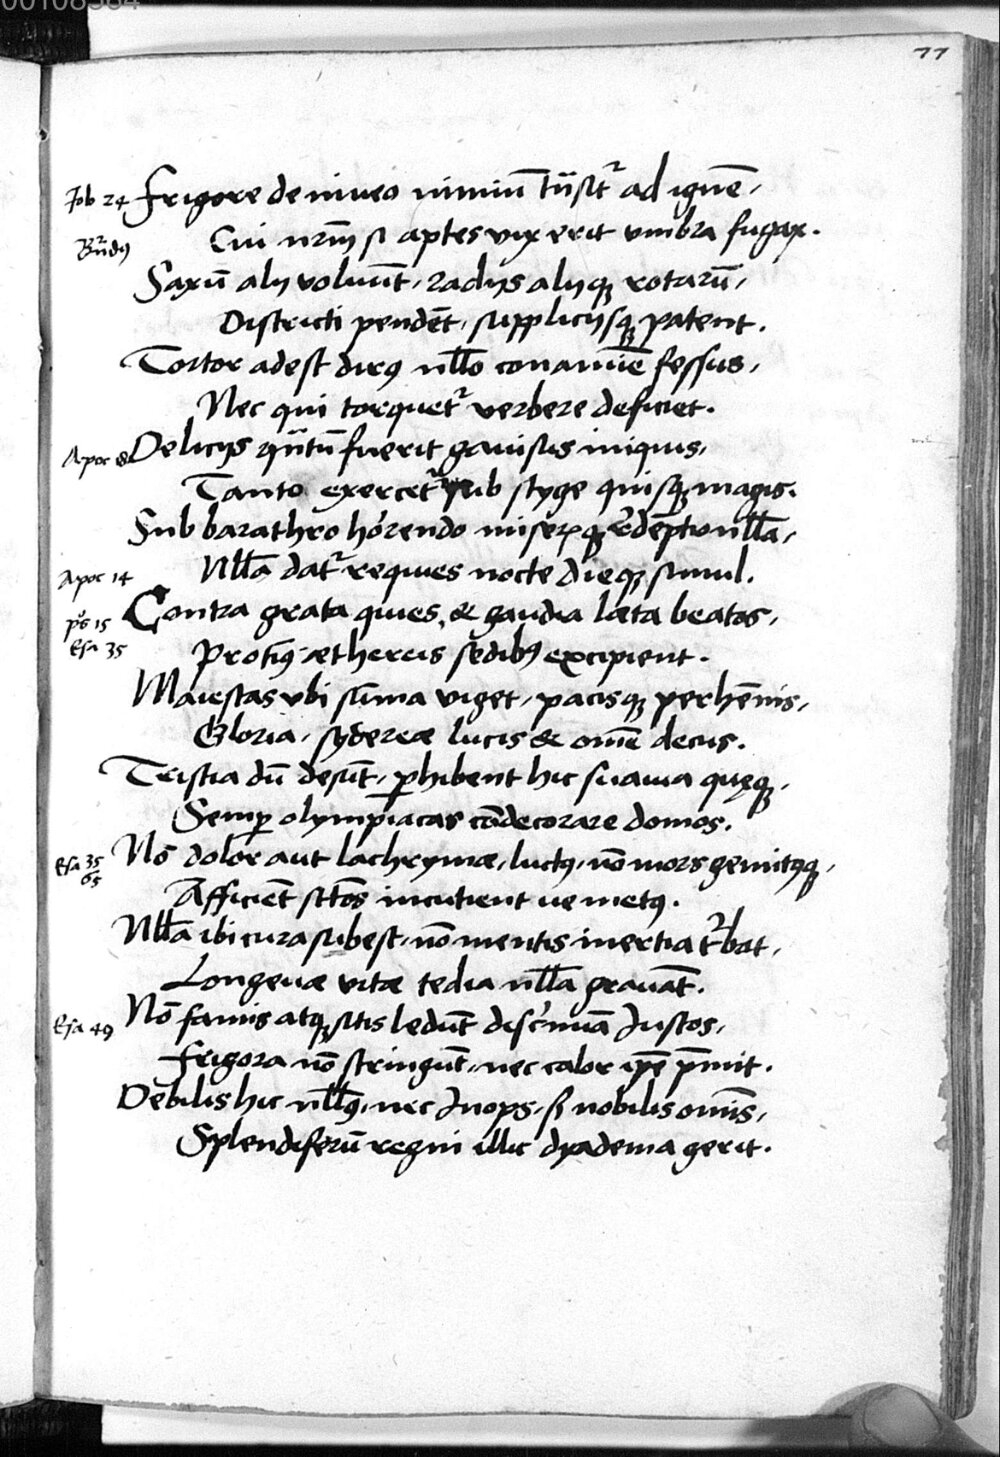 00108384
77
Job 24 Frigore de niueo nimiũ trãsit᷑ ad ignẽ,
Cui nr̃m si aptes vix erit vmbra fugax.
Br̃ndꝰ
Saxũ alij voluũt, radijs alijq; rotarũ,
Districti pendẽt, supplicijsq; patent.
Tortor adest dirꝰ nll̃o conamĩe fessus,
Nec qui torquet᷑ verbere deficiet.
Apoc 18 Delicijs qñtũ fuerit gauisus iniquis,
Tanto exercet᷑ sub styge quisq; magis.
Sub barathro horrendo miserisq; rẽdẽptio nll̃a,
Apoc 14 Nll̃a dat᷑ requies nocte dieq; simul.
Contra grata quies, & gaudia læta beatos,
ps̃ 15
Esa 35 Protinꝰ æthereis sedibꝰ excipient.
Maiestas vbi sũma viget, pacisq; perhẽnis,
Gloria, sydereæ lucis & om̃e decus.
Tristia dũ desũt, ꝑhibent hic suauia quęq;,
Semꝑ olympiacas cõdecorare domos.
Esa 35 65 Nõ dolor aut lachrymæ, luctꝰ, nõ mors gemitꝰq;,
Afficiẽt sctõs incutient ue metꝰ.
Nll̃a ibi cura subest, nõ mentis inertia t᷑bat,
Longeuæ vitæ tedia nll̃a grauãt.
Esa 49 Nõ famis atq; sitis ledũt discrimĩa Iustos,
Frigora nõ stringũt, nec calor ip̃e p̃mit.
Debilis hic nll̃ꝰ, nec Inops, s; nobilis om̃is,
Splendiferũ regni illic dyadema gerit.